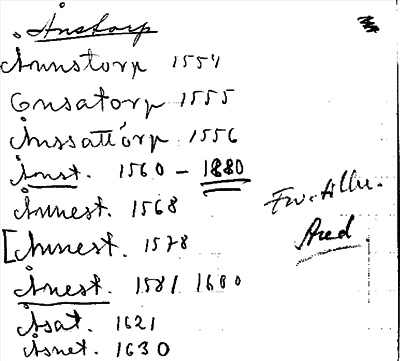 Ånstorp
Annnstorp 1554
Onsatorp 1555
Anssattorp 1556
Ånst. 1560 – 1880
Annest. 1568
[Annest. 1578
Ånest. 1581 1600
Åsat. 1621
Åsnet. 1630